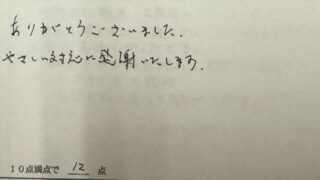 ありがとうございました.
やさしい対応に感謝いたします.
10点満点で 12 点